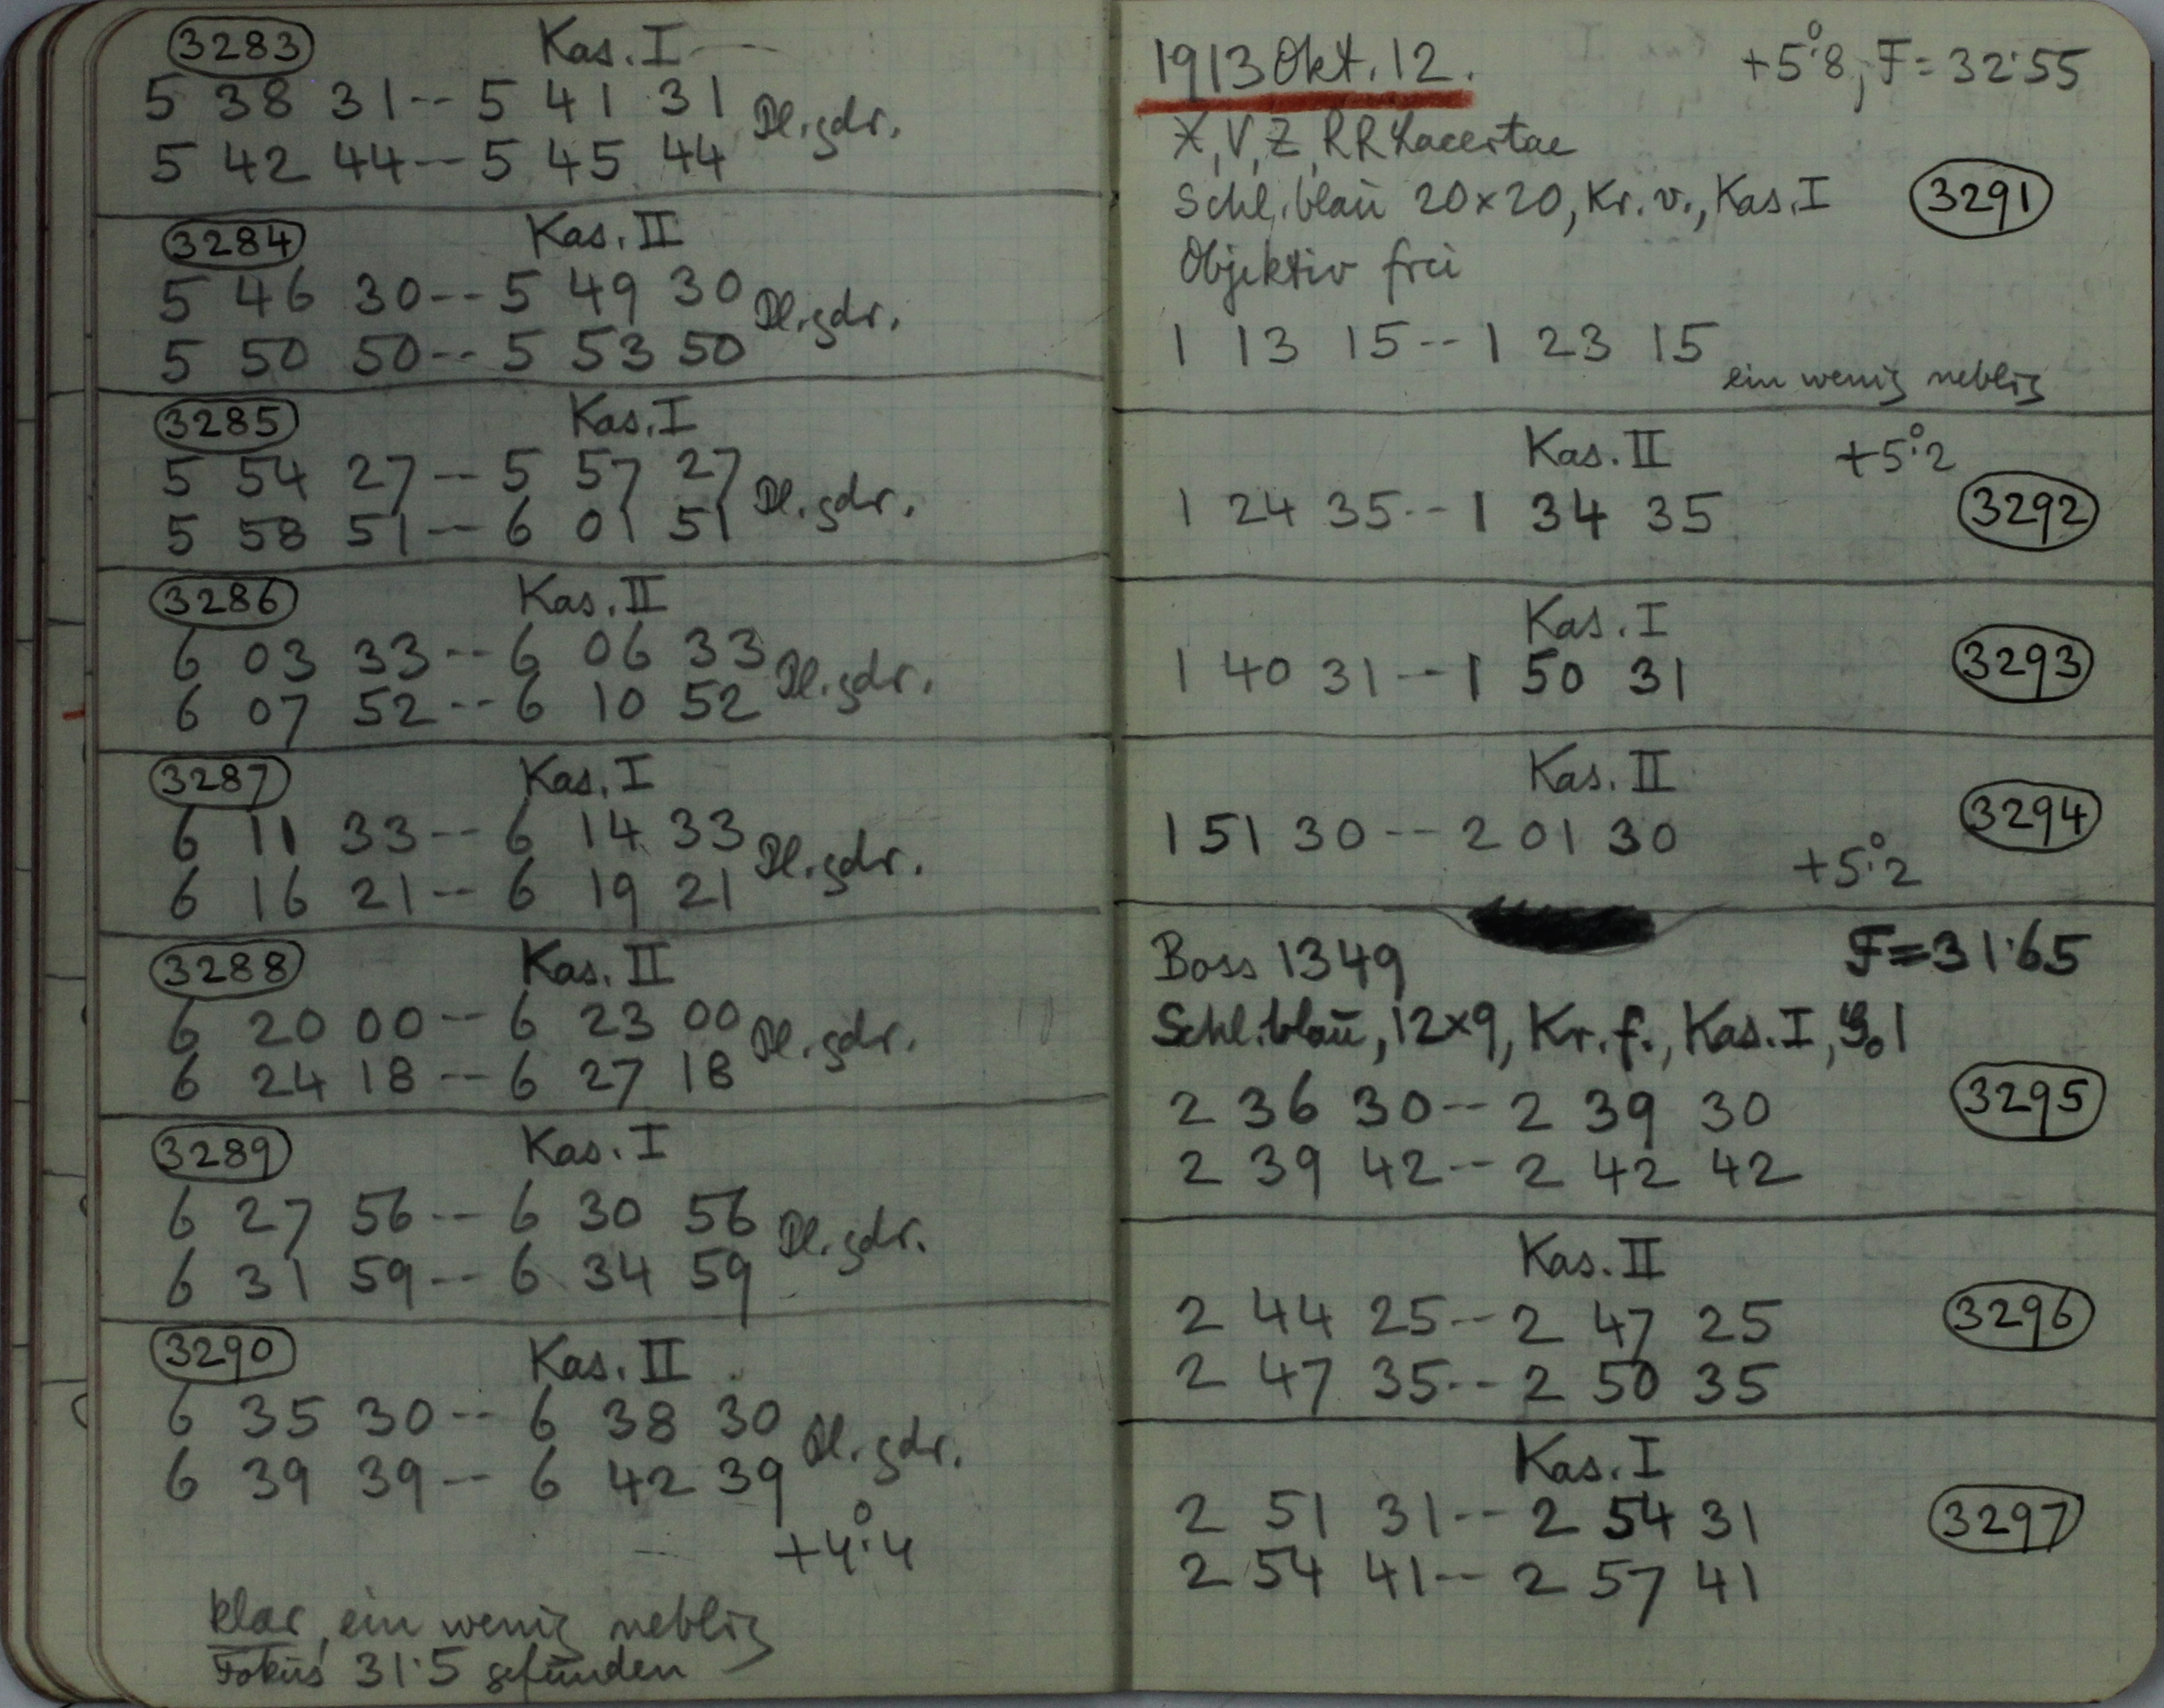 3283 Kas. I
5 38 31 -- 5 41 31 Pl. gdr.
5 42 44 -- 5 45 44
3284 Kas. II
5 46 30 -- 5 49 30 Pl. gdr.
5 50 50 -- 5 53 50
3285 Kas. I
5 54 27 -- 5 57 27 Pl. gdr.
5 58 51 -- 6 01 51
3286 Kas. II
6 03 33 -- 6 06 33 Pl. gdr.
6 07 52 -- 6 10 52
3287 Kas. I
6 11 33 -- 6 14 33 Pl. gdr.
6 16 21 -- 6 19 21
3288 Kas. II
6 20 00 -- 6 23 00 Pl. gdr.
6 24 18 -- 6 27 18
3289 Kas. I
6 27 56 -- 6 30 56 Pl. gdr.
6 31 59 -- 6 34 59
3290 Kas. II
6 35 30 -- 6 38 30 Pl. gdr.
6 39 39 -- 6 42 39
+4°.4
klar, ein wenig neblig
Fokus 31.5 gefunden
1913 Okt. 12. +5°.8, F = 32.55
X, V, Z, RR Lacertae
Schl. blau 20x20, Kr. v., Kas. I 3291
Objektiv frei
1 13 15 -- 1 23 15
ein wenig neblig
Kas. II +5°.2
1 24 35 -- 1 34 35 3292
Kas. I
1 40 31 -- 1 50 31 3293
Kas. II
1 51 30 -- 2 01 30 3294
+5°.2
Boss 1349 F = 31.65
Schl. blau, 12x9, Kr. f., Kas. I,
2 36 30 -- 2 39 30 3295
2 39 42 -- 2 42 42
Kas. II
2 44 25 -- 2 47 25 3296
2 47 35 -- 2 50 35
Kas. I
2 51 31 -- 2 54 31 3297
2 54 41 -- 2 57 41